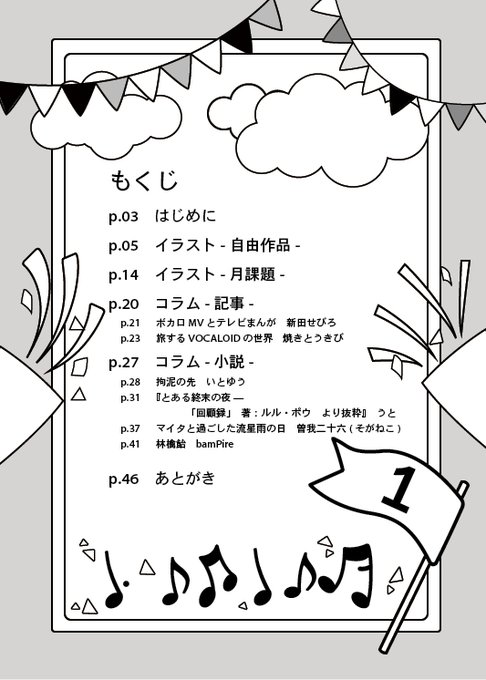 もくじ
p.03 はじめに
p.05 イラスト - 自由作品 -
p.14 イラスト - 月課題 -
p.20 コラム - 記事 -
p.21 ボカロ MV とテレビまんが 新田せびろ
p.23 旅する VOCALOID の世界 焼きとうきび
p.27 コラム - 小説 -
p.28 拘泥の先 いとゆう
p.31 『とある終末の夜 ―
「回顧録」 著：ルル・ボウ より抜粋』 うと
p.37 マイタと過ごした流星雨の日 曾我二十六 ( そがねこ )
p.41 林檎飴 bamPire
p.46 あとがき
1